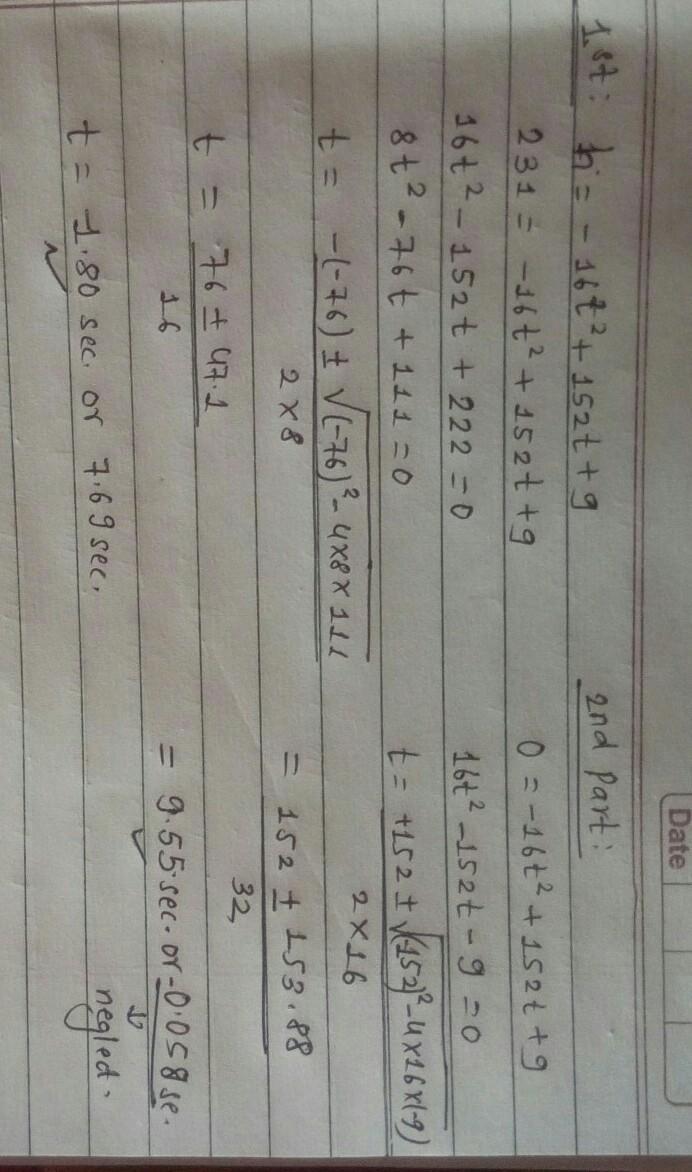 Date
1st: h = -16t² + 152t + 9
231 = -16t² + 152t + 9
16t² - 152t + 222 = 0
8t² - 76t + 111 = 0
t = -(-76) ± √(-76)² - 4×8×111
2×8
t = 76 ± 47.1
16
t = 1.80 sec. or 7.69 sec.
2nd Part:
0 = -16t² + 152t + 9
16t² - 152t - 9 = 0
t = +152 ± √(-152)² - 4×16×(-9)
2×16
= 152 ± 153.88
32,
= 9.55 sec. or -0.058 se.
↓
neglect.